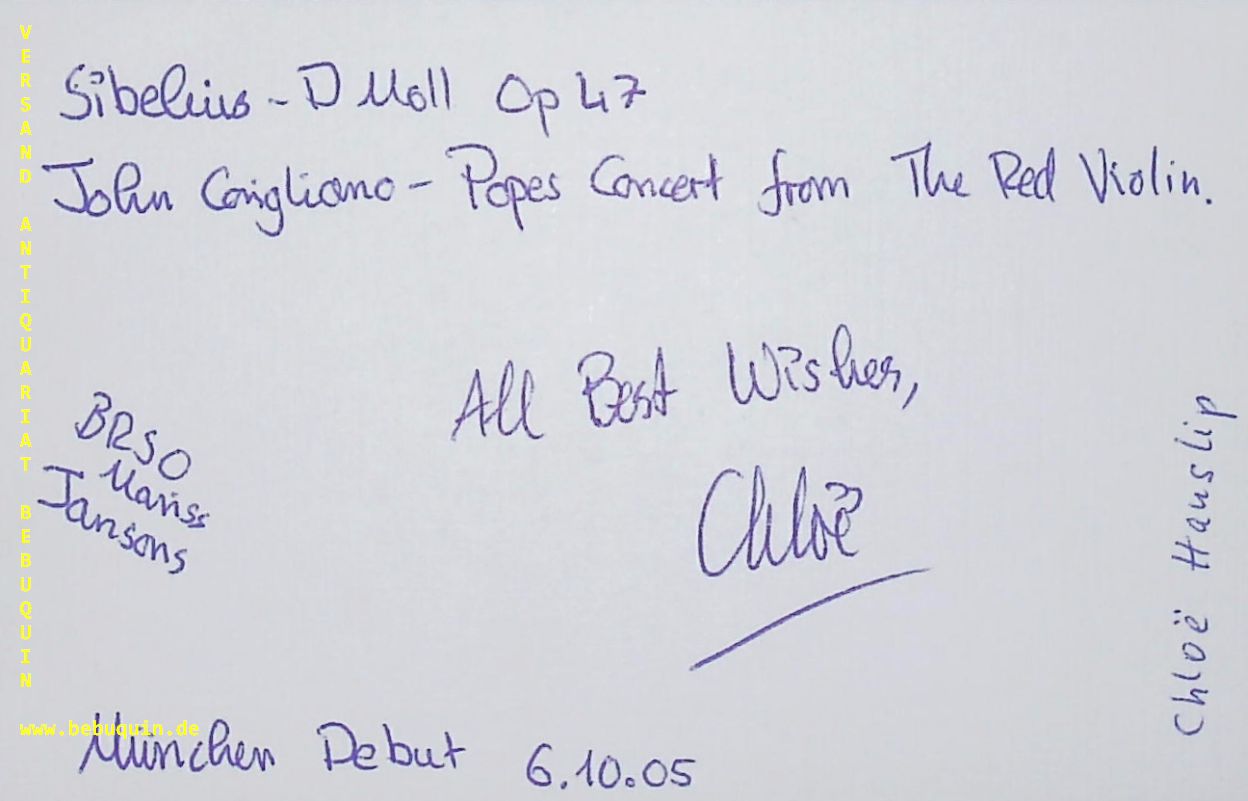 Sibelius - D Moll Op 47
John Corigliano - Popes Concert from The Red Violin.
All Best Wishes,
Chloë
BRSO
Mariss
Jansons
München Debut 6.10.05
Chloë Hanslip
VERSAND ANTIQUARIAT BEBUQUIN
www.bebuquin.de